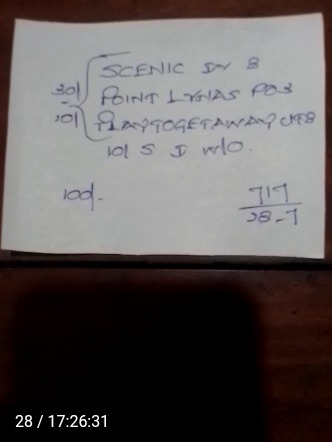 SCENIC DY 8
30/ POINT LYNAS PO3
10/ PLAYTOGETAWAY
10/ S I W/O.
100/-
717
28-7
28 / 17:26:31